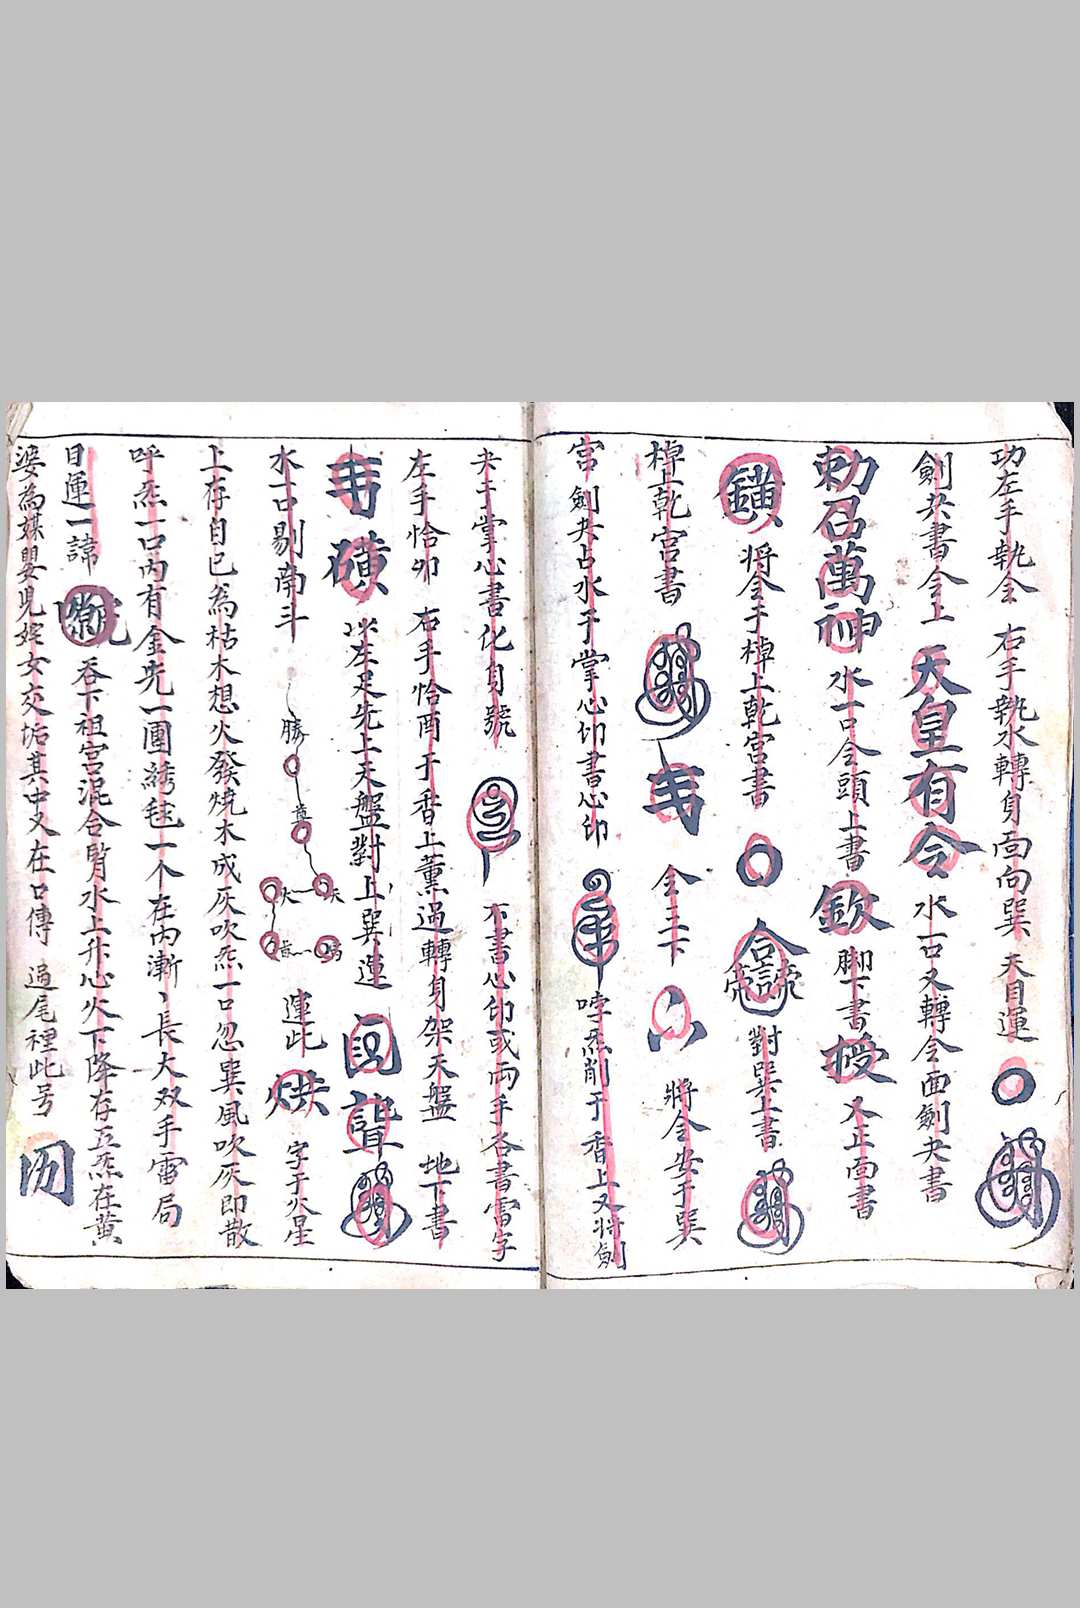 功左手執令右手執水轉身面向巽天目運
劍夬書令上天皇有令水一口又轉令面劍夬書
勅召萬神水一口令頭上書欽脚下書授又正面書
鐄將令于棹上乾宮書對巽上書
棹上乾宮書 令三下 將令安于巽
宮劍夬占水于掌心印書心印 哱炁削于香上又將劍
夬于掌心書化身號 下書心印或両手各書雷字
左手恰卯右手恰酉于香上薰過轉身架天盤地下書
以左足先上天盤對上巽運
水一口剔南斗 運此 烘 字于火星
上存自己為枯木想火發燒木成灰吹炁一口忽巽風吹灰即散
呼炁一口內有金光一團綉毬一个在內漸漸長大双手雷局
日運一諱 吞下祖宮混合腎水上升心火下降存五炁在黃
婆為媒嬰児姹女交垢其中又在口傳 過尾裡此号